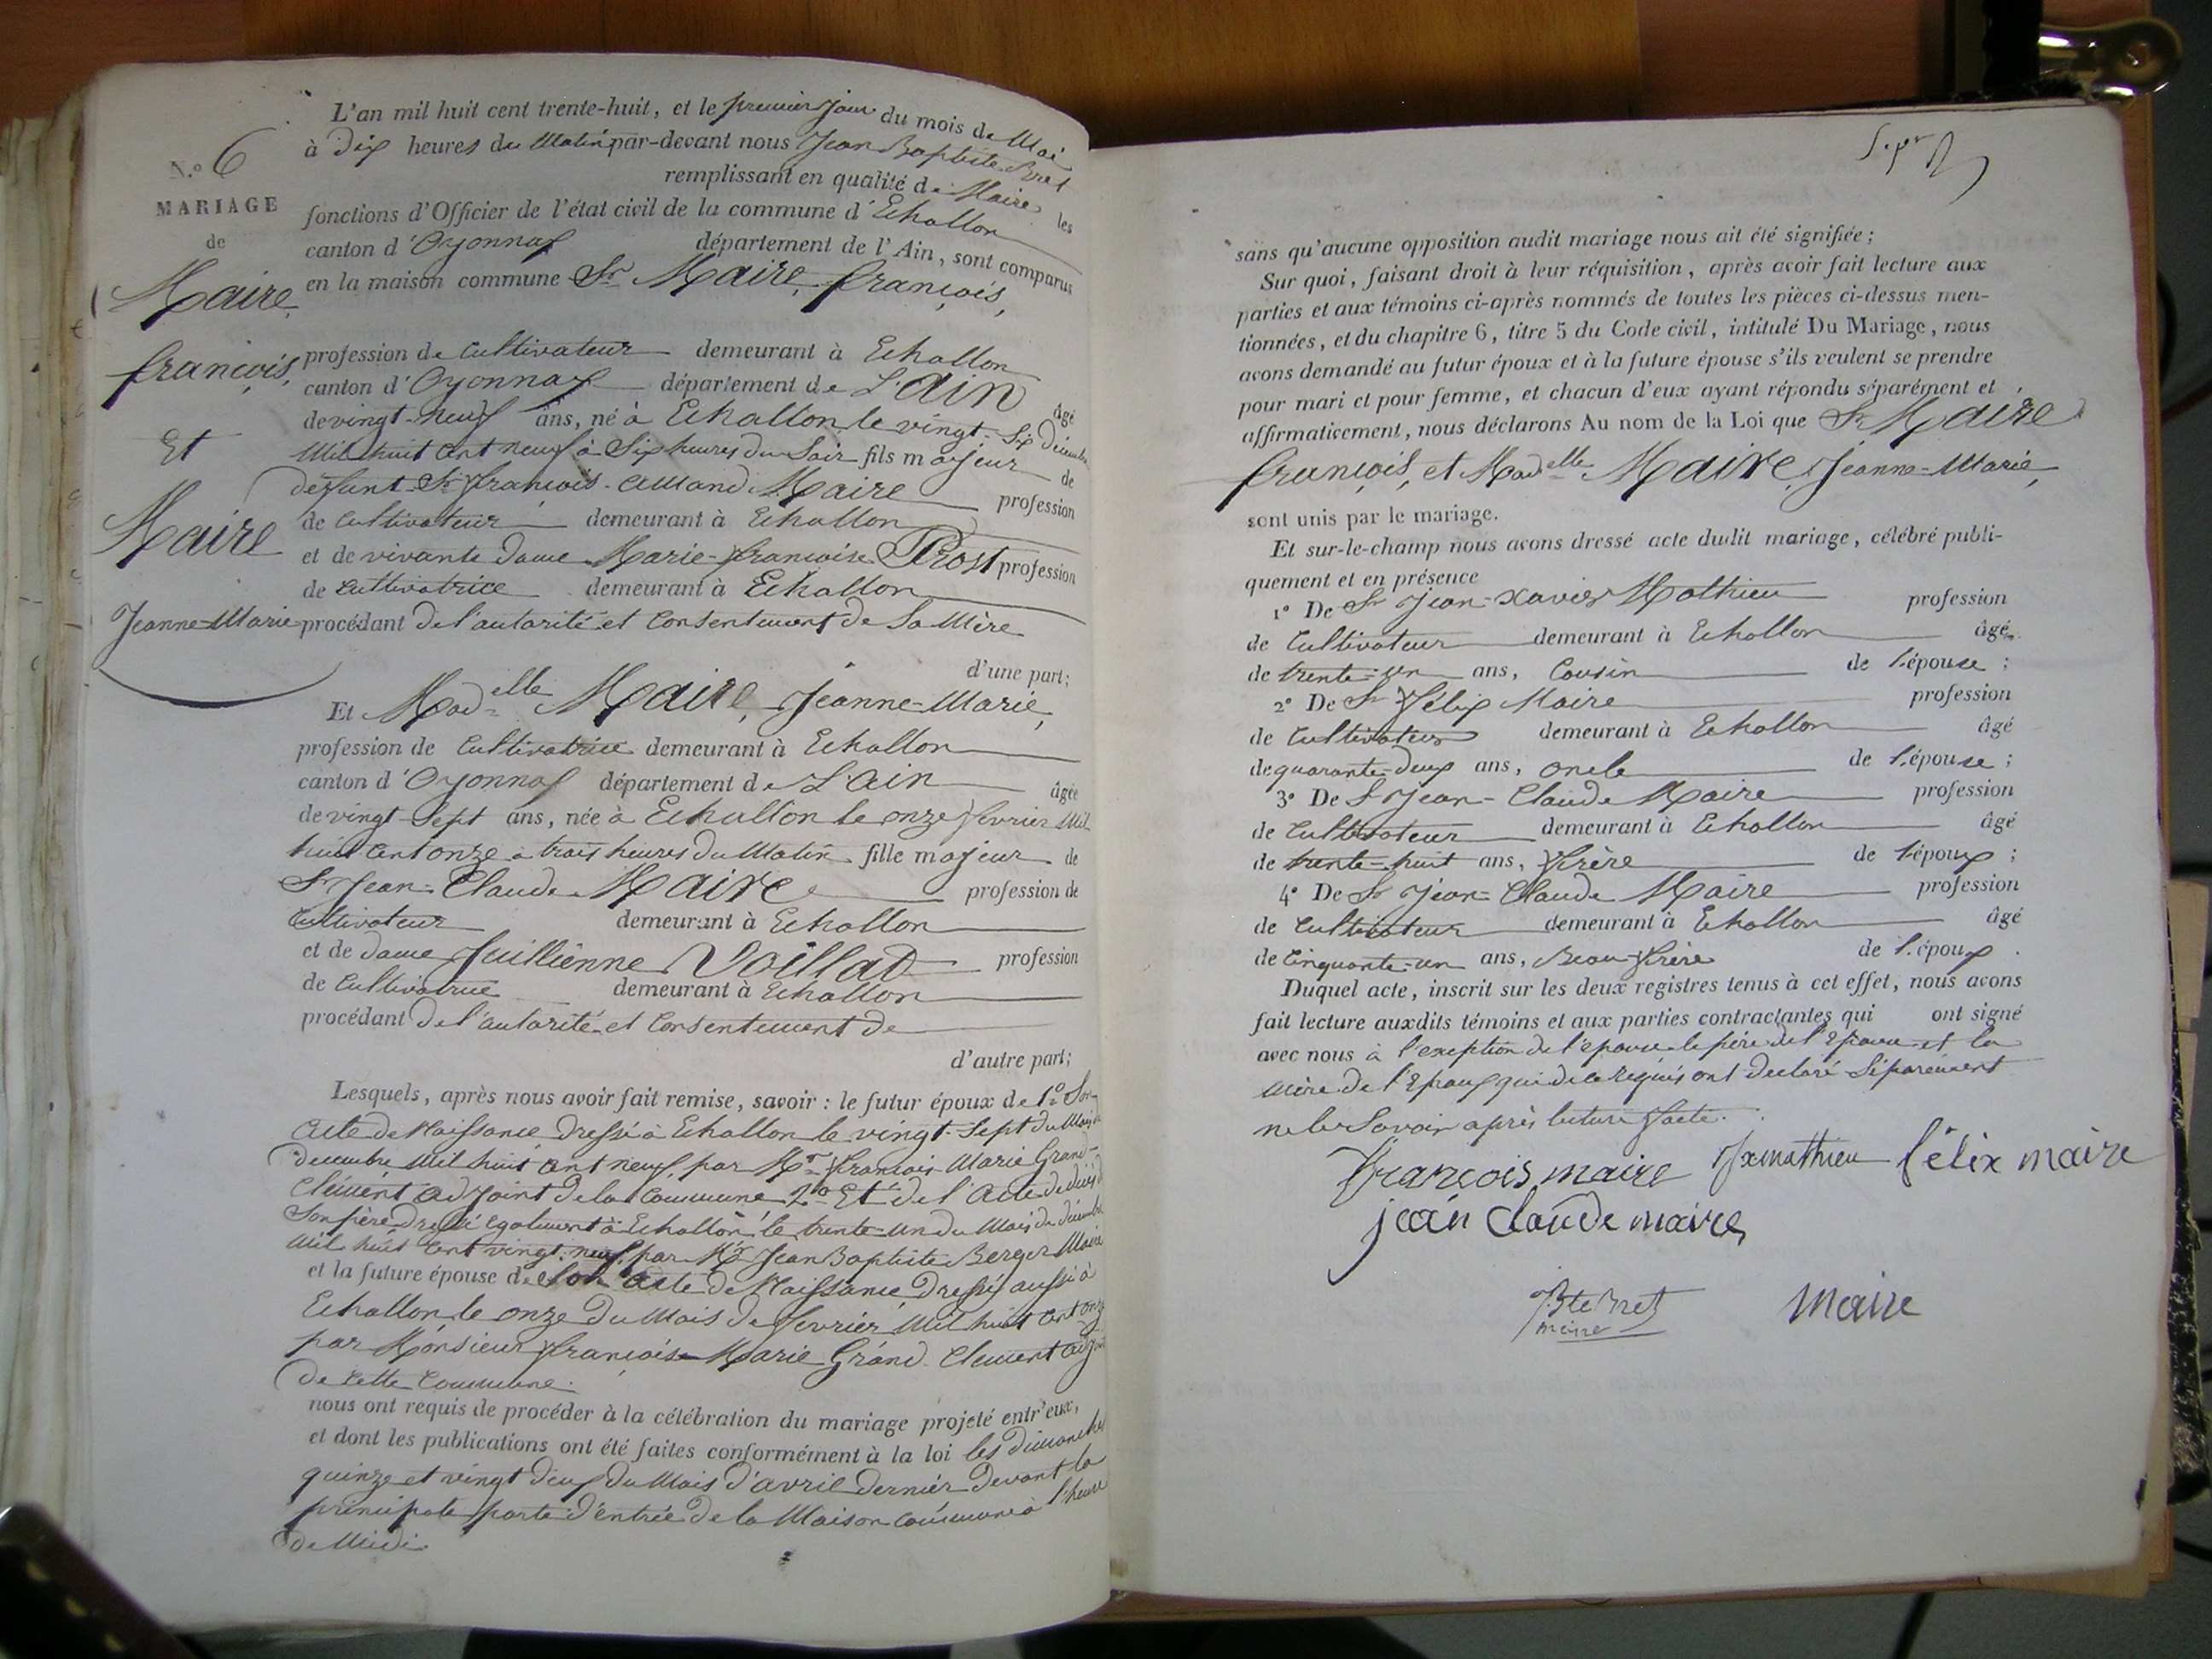 N.o 6
MARIAGE
de
Maire
françois,
Et
Maire
Jeanne-Marie
L'an mil huit cent trente-huit, et le premier jour du mois de Mai
à dix heures du Matin par-devant nous Jean Baptiste Bret
remplissant en qualité de Maire les
fonctions d'Officier de l'état civil de la commune d'Echallon
canton d'Oyonnax département de l'Ain, sont comparus
en la maison commune Sr Maire, françois,
profession de Cultivateur demeurant à Echallon
canton d'Oyonnax département de L'ain âgé
de vingt-neuf ans, né à Echallon le vingt-six décembre
Mil huit Cent neuf à Six heures du Soir fils majeur de
défunt Sr françois-amand Maire profession
de Cultivateur demeurant à Echallon
et de vivante dame Marie-françoise Prost profession
de Cultivatrice demeurant à Echallon
procédant de l'autorité et Consentement de Sa Mère
d'une part;
Et Madelle Maire, Jeanne-Marie,
profession de Cultivatrice demeurant à Echallon
canton d'Oyonnax département de L'ain âgée
de vingt-Sept ans, née à Echallon le onze fevrier Mil
huit Cent onze à trois heures du Matin fille majeur de
Sr Jean-Claude Maire profession de
Cultivateur demeurant à Echallon
et de dame Juillienne Voillat profession
de Cultivatrice demeurant à Echallon
procédant de l'autorité et Consentement de
d'autre part;
Lesquels, après nous avoir fait remise, savoir : le futur époux de 1o Son
acte de Naissance Dressé à Echallon le vingt-Sept du Mois de
Decembre Mil huit Cent neuf, par Mr françois Marie Grand-
Clément adjoint de la Commune 2o Et de l'acte de décès de
Son père Dressé Egalement à Echallon le trente-un du Mois de décembre
Mil huit Cent vingt-neuf par Mr Jean Baptiste Berger Maire
et la future épouse de Son acte de Naissance Dressé aussi à
Echallon le onze du Mois de fevrier Mil huit Cent onze
par Monsieur françois-Marie Grand-Clement adjoint
de Cette Commune.
nous ont requis de procéder à la célébration du mariage projeté entr'eux,
et dont les publications ont été faites conformément à la loi les dimanches
quinze et vingt deux du Mois d'avril Dernier Devant la
principale porte d'entrée de la Maison Commune à l'heure
de Midi.
sans qu'aucune opposition audit mariage nous ait été signifiée ;
Sur quoi, faisant droit à leur réquisition, après avoir fait lecture aux
parties et aux témoins ci-après nommés de toutes les pièces ci-dessus men-
tionnées, et du chapitre 6, titre 5 du Code civil, intitulé Du Mariage, nous
avons demandé au futur époux et à la future épouse s'ils veulent se prendre
pour mari et pour femme, et chacun d'eux ayant répondu séparément et
affirmativement, nous déclarons Au nom de la Loi que Sr Maire
françois, et Madelle Maire, Jeanne-Marie,
sont unis par le mariage.
Et sur-le-champ nous avons dressé acte dudit mariage, célébré publi-
quement et en présence
1o De Sr Jean-Xavier Mathieu profession
de Cultivateur demeurant à Echallon âgé
de trente-un ans, Cousin de l'épouse ;
2o De Sr Félix Maire profession
de Cultivateur demeurant à Echallon âgé
de quarante-deux ans, oncle de l'épouse ;
3o De Sr Jean-Claude Maire profession
de Cultivateur demeurant à Echallon âgé
de trente-huit ans, frère de l'époux ;
4o De Sr Jean-Claude Maire profession
de Cultivateur demeurant à Echallon âgé
de Cinquante-un ans, Beau-frère de l'époux .
Duquel acte, inscrit sur les deux registres tenus à cet effet, nous avons
fait lecture auxdits témoins et aux parties contractantes qui ont signé
avec nous à l'exeption de l'epouse le père de l'Epouse et la
Mère de l'Epoux qui de ce Requis ont declaré Séparément
ne le Savoir après lecture faite.
françois maire Jx mathieu félix maire
jean claude maire
Bte Bret maire
maire